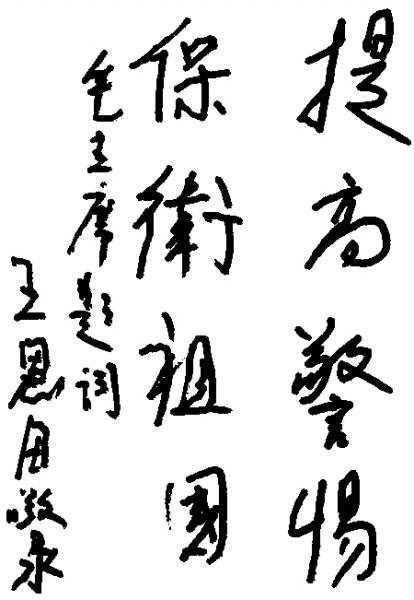 提高警惕
保衛祖國
毛主席题词
王恩田敬录